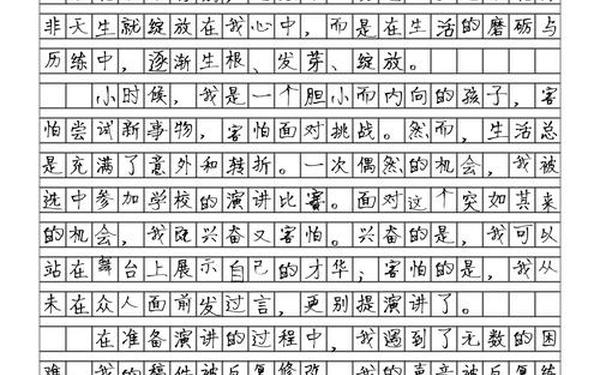 非天生就绽放在我心中，而是在生活的磨砺与
历练中，逐渐生根、发芽、绽放。
小时候，我是一个胆小而内向的孩子，害
怕尝试新事物，害怕面对挑战。然而，生活总
是充满了意外和转折。一次偶然的机会，我被
选中参加学校的演讲比赛。面对这个突如其来
的机会，我既兴奋又害怕。兴奋的是，我可以
站在舞台上展示自己的才华；害怕的是，我从
未在众人面前发过言，更别提演讲了。
在准备演讲的过程中，我遇到了无数的困
难。我的稿件被反复修改，我的声音被反复练